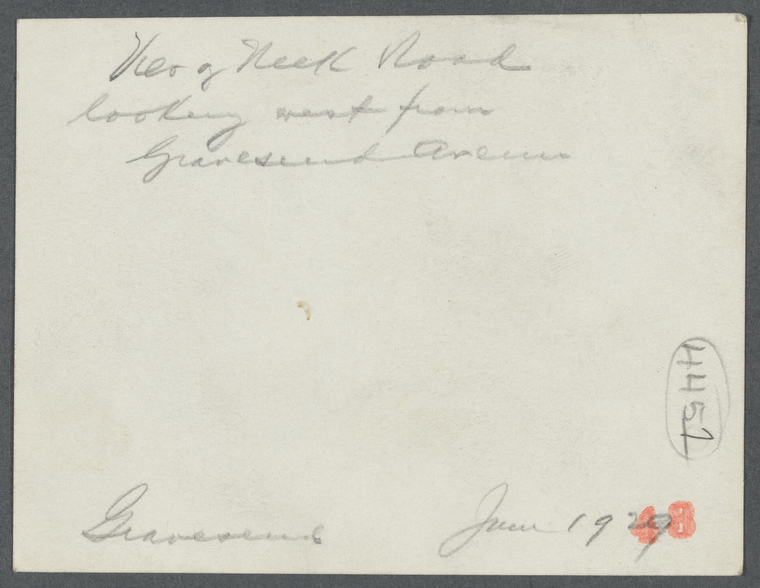 View of Neck Road
looking west from
Gravesend Avenue
4451
Gravesend June 1929
48